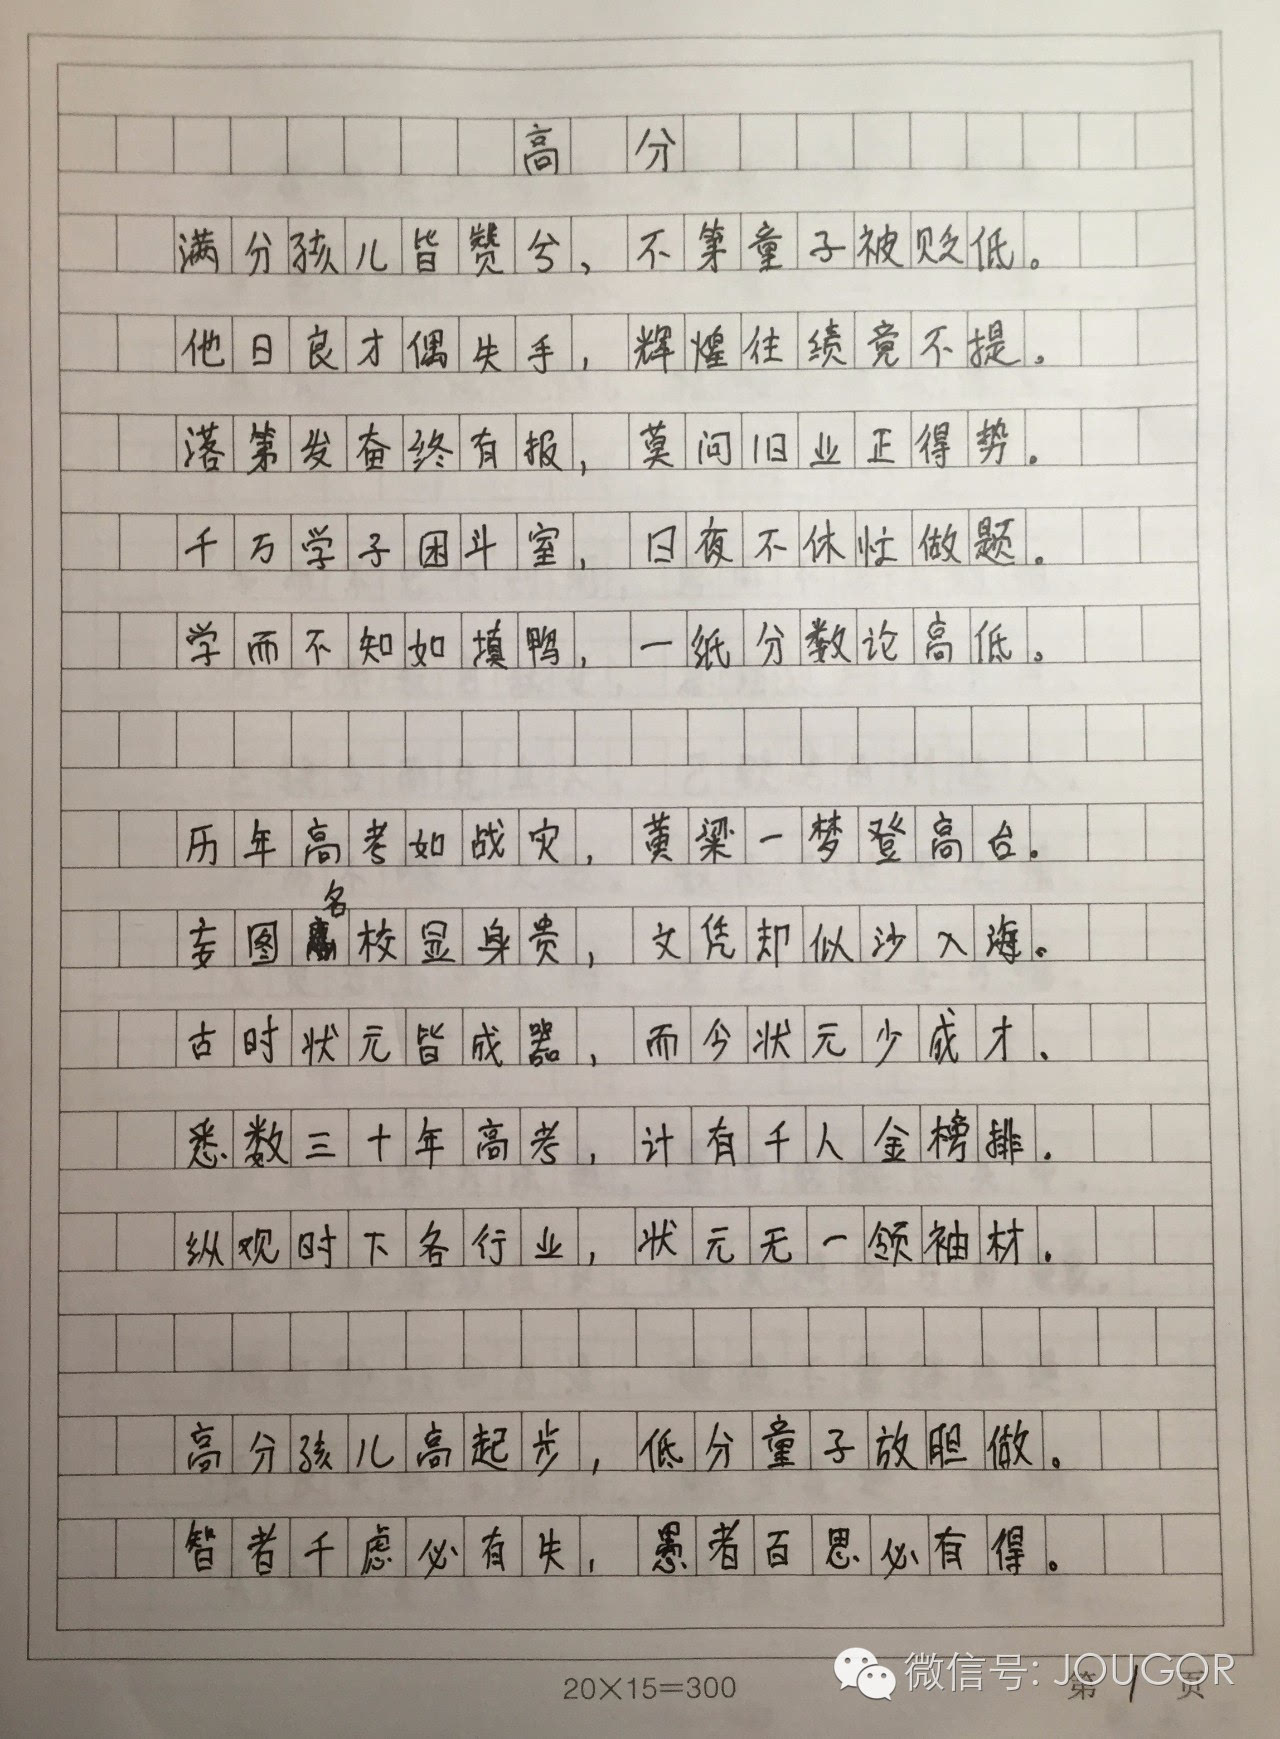 高 分
满分孩儿皆赞兮,不第童子被贬低。
他日良才偶失手,辉煌往绩竟不提。
落第发奋终有报,莫问旧业正得势。
千万学子困斗室,日夜不休忙做题。
学而不知如填鸭,一纸分数论高低。
历年高考如战灾,黄梁一梦登高台。
妄图名校显身贵,文凭却似沙入海。
古时状元皆成器,而今状元少成才、
悉数三十年高考,计有千人金榜排.
纵观时下各行业,状元无一领袖材.
高分孩儿高起步,低分童子放胆做。
智者千虑必有失,愚者百思必有得。
20×15=300
第 1 页
微信号: JOUGOR